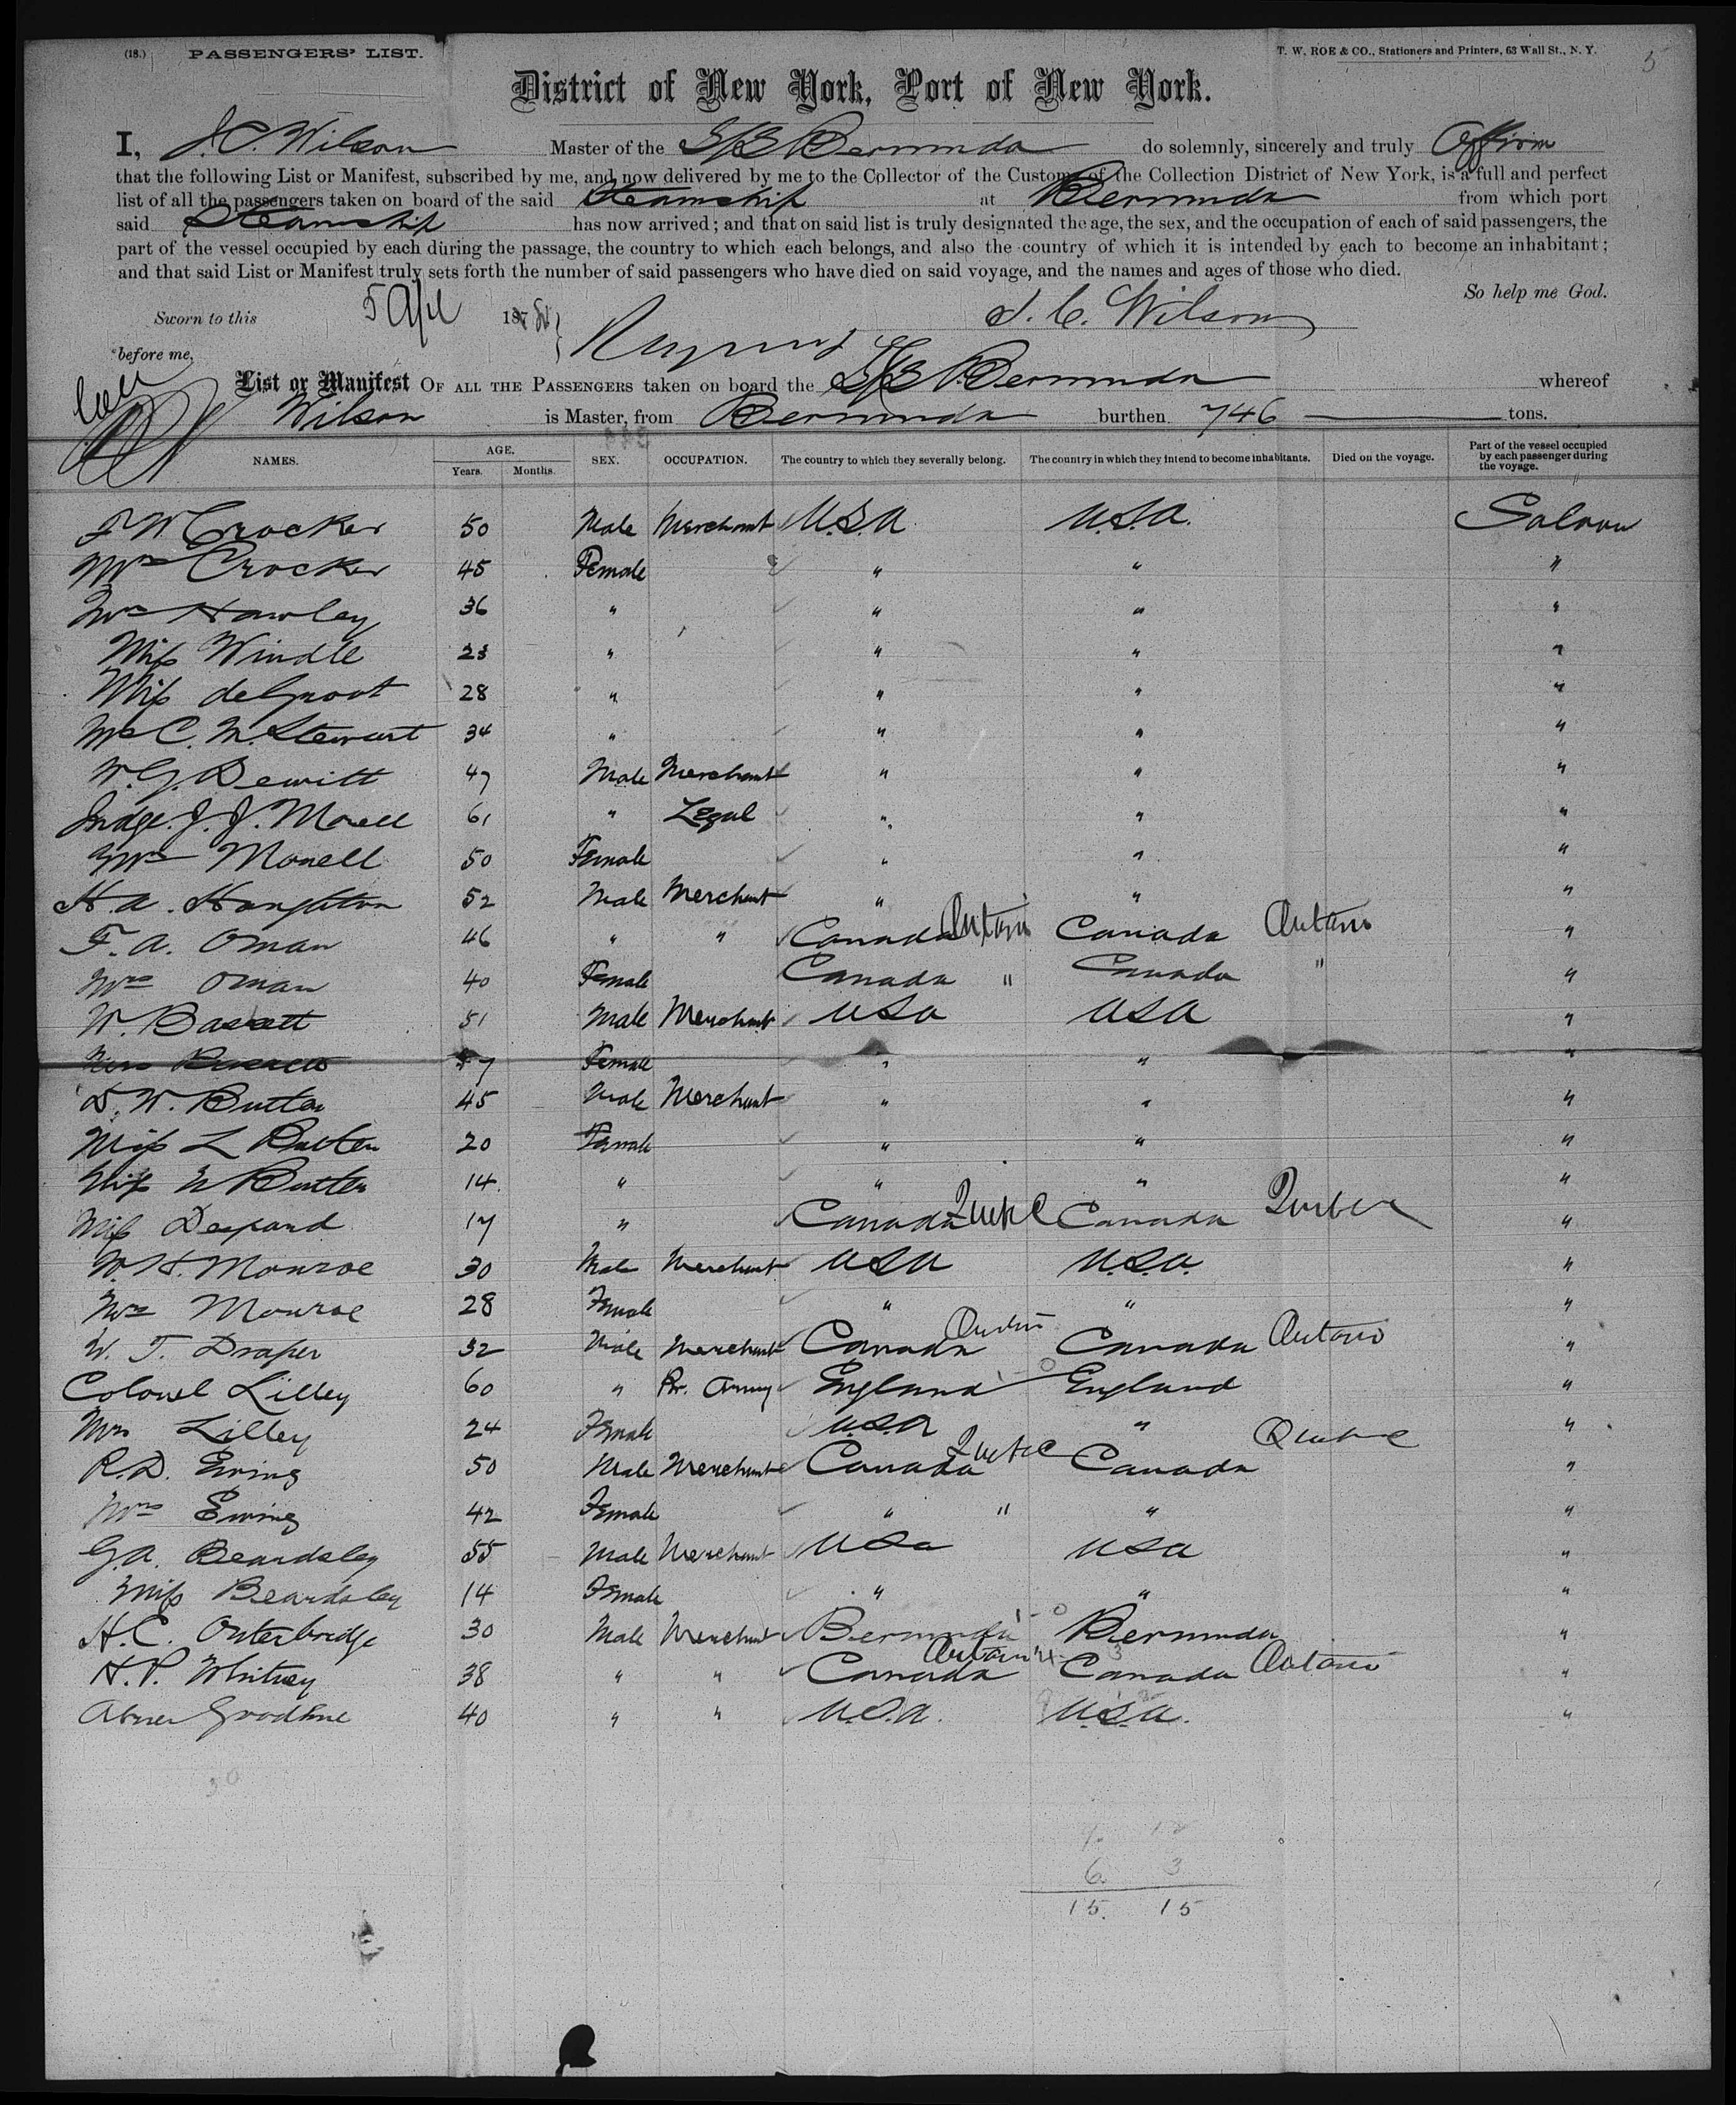 (18.) PASSENGERS' LIST. T. W. ROE & CO., Stationers and Printers, 63 Wall St., N. Y. 5
District of New York, Port of New York.
I, J. C. Wilson Master of the S/S Bermuda do solemnly, sincerely and truly Affirm
that the following List or Manifest, subscribed by me, and now delivered by me to the Collector of the Customs of the Collection District of New York, is a full and perfect
list of all the passengers taken on board of the said Steamship at Bermuda from which port
said Steamship has now arrived; and that on said list is truly designated the age, the sex, and the occupation of each of said passengers, the
part of the vessel occupied by each during the passage, the country to which each belongs, and also the country of which it is intended by each to become an inhabitant;
and that said List or Manifest truly sets forth the number of said passengers who have died on said voyage, and the names and ages of those who died.
So help me God.
Sworn to this 5 Apl 187 J. C. Wilson
before me,
List or Manifest OF ALL THE PASSENGERS taken on board the S/S Bermuda whereof
Wilson is Master, from Bermuda burthen 746 tons.
NAMES. AGE. Years. Months. SEX. OCCUPATION. The country to which they severally belong. The country in which they intend to become inhabitants. Died on the voyage. Part of the vessel occupied by each passenger during the voyage.
W. Crocker 50 Male Merchant U.S.A U.S.A. Saloon
Mrs Crocker 45 Female " " "
Mrs Hawley 36 " " " "
Miss Windle 23 " " " "
Miss deGroot 28 " " " "
C. M. Stewart 34 " " " "
W. G. Dewitt 47 Male Merchant " " "
Judge J. J. Monell 61 " Legal " " "
Mrs Monell 50 Female " " "
H. A. Houghton 52 Male Merchant " " "
F. A. Oman 46 " " Canada Ontario Canada Ontario "
Mrs Oman 40 Female Canada " Canada " "
W. Bassett 51 Male Merchant USA USA "
Bassett 7 Female " " "
D. W. Butler 45 Male Merchant " " "
Miss L Butler 20 Female " " "
Miss Butler 14 " " " "
Miss Despard 17 " Canada Quebec Canada Quebec "
W. H. Monroe 30 Male Merchant USA U.S.A. "
Mrs Monroe 28 Female " " "
W. T. Draper 32 Male Merchant Canada Ontario Canada Ontario "
Colonel Lilley 60 " Br. Army England England "
Mrs Lilley 24 Female U.S.A " "
R. D. Ewing 50 Male Merchant Canada Quebec Canada Quebec "
Mrs Ewing 42 Female " " " "
G. A. Beardsley 55 Male Merchant USA USA "
Miss Beardsley 14 Female " " "
H. C. Outerbridge 30 Male Merchant Bermuda Bermuda "
H. P. Whitney 38 " " Canada Ontario Canada Ontario "
Abner 40 " " U.S.A. U.S.A. "
6 3
15. 15